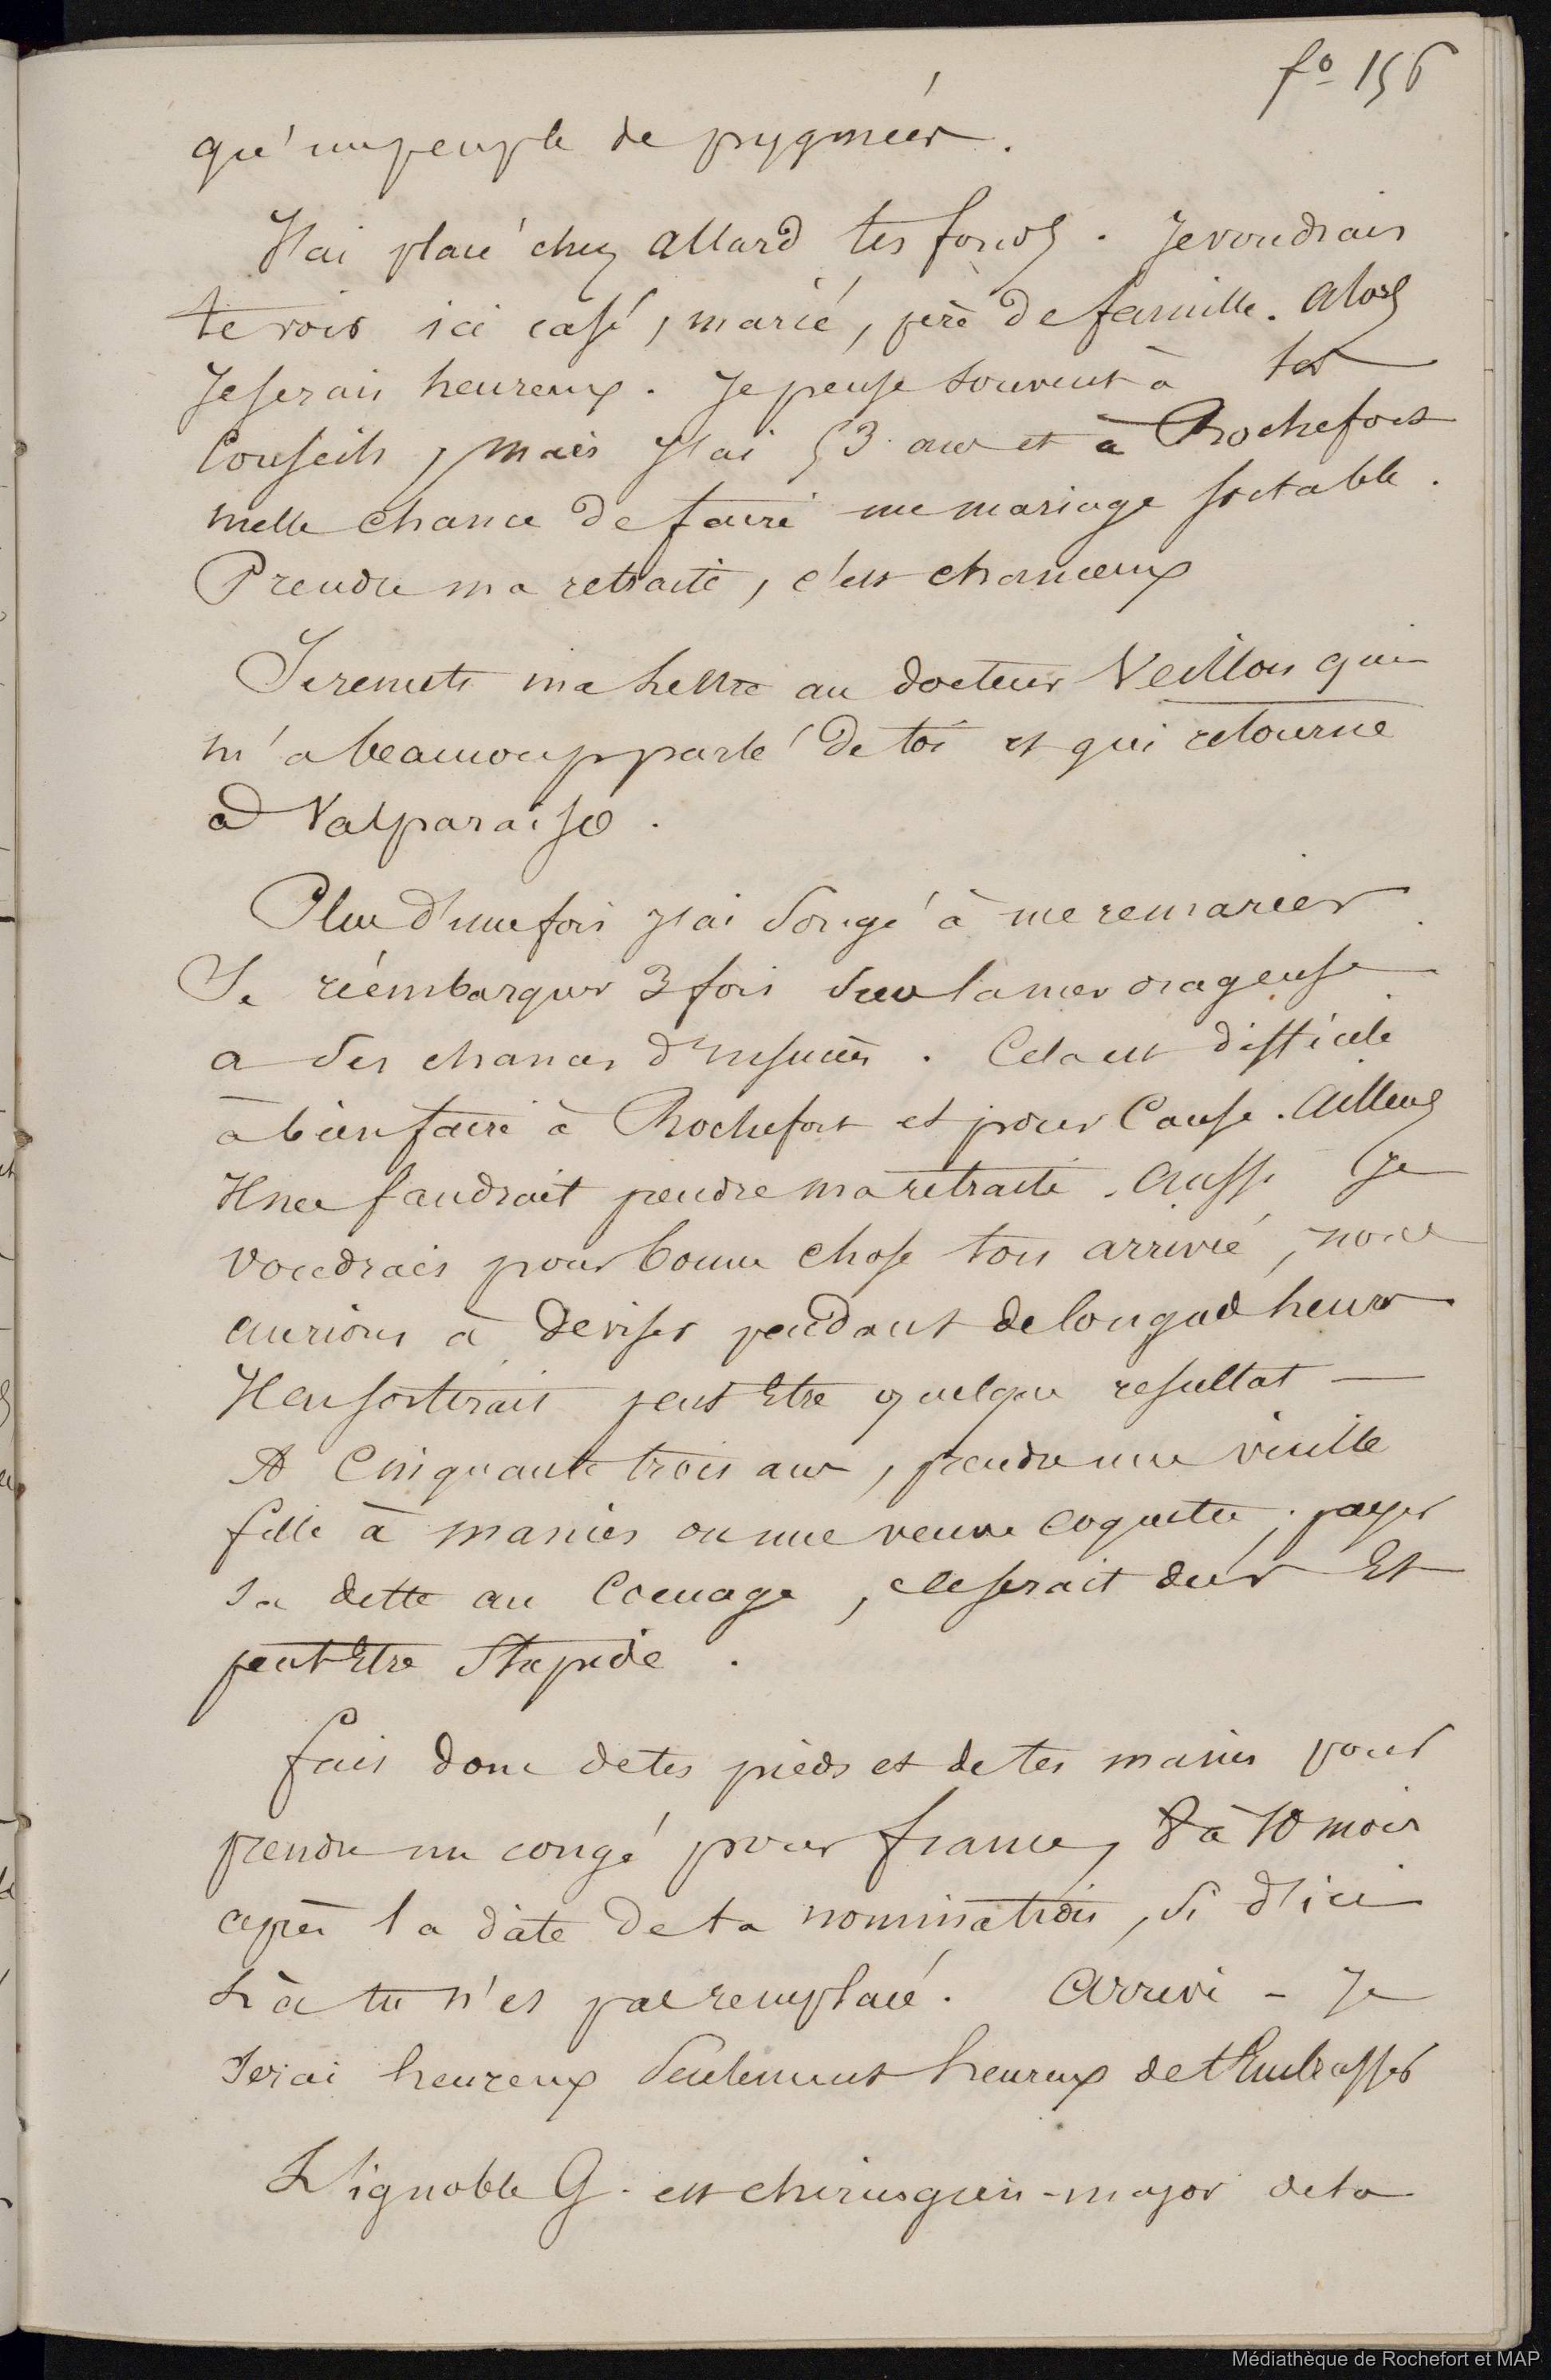 fo 156
qu'un peuple de pygmées.
J'ai placé chez Allard tes fonds. Je voudrais
te voir ici casé, marié, père de famille. Alors
Je serais heureux. Je pense souvent à tes
Conseils, mais J'ai 53 ans et à Rochefort
nulle chance de faire un mariage sortable.
Prendre ma retraite, c'est chanceux
Je remets ma lettre au docteur Veillon qui
m'a beaucoup parlé de toi et qui retourne
à Valparaiso.
Plus d'une fois J'ai songé à me remarier
Se réembarquer 3 fois sur la mer orageuse
a des chances d'insuccès. Cela est difficile
à bien faire à Rochefort et pour Cause. Ailleurs
Il me faudrait prendre ma retraite. Aussi Je
voudrais pour bonne chose ton arrivée, nous
aurions à deviser pendant de longues heures
Il en sortirait peut Etre quelque resultat —
A Cinquante trois ans, prendre une vieille
fille à manies ou une veuve coquette, payer
sa dette au Cocuage, ce serait dur Et
peut Etre Stupide.
fais donc de tes pieds et de tes mains pour
prendre un congé pour france, 8 à 10 mois
après la date de ta nomination, si d'ici
Là tu n'es pas remplacé. Arrive - Je
Serai heureux Seulement heureux de t'Embrasser
L'ignoble G. est chirurgien-major de la
Médiathèque de Rochefort et MAP